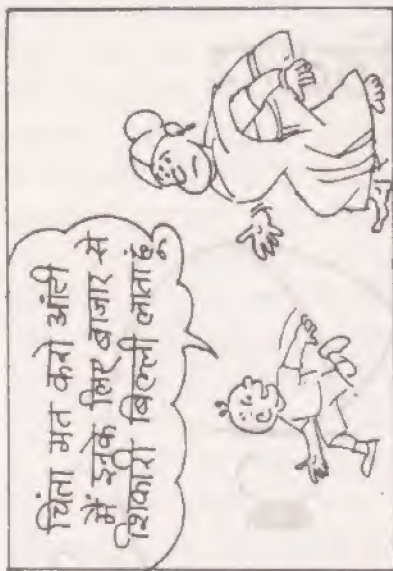 चिंता मत करो आंटी
में इनके लिए बाजार से
शिकारी बिल्ली लाता हूँ